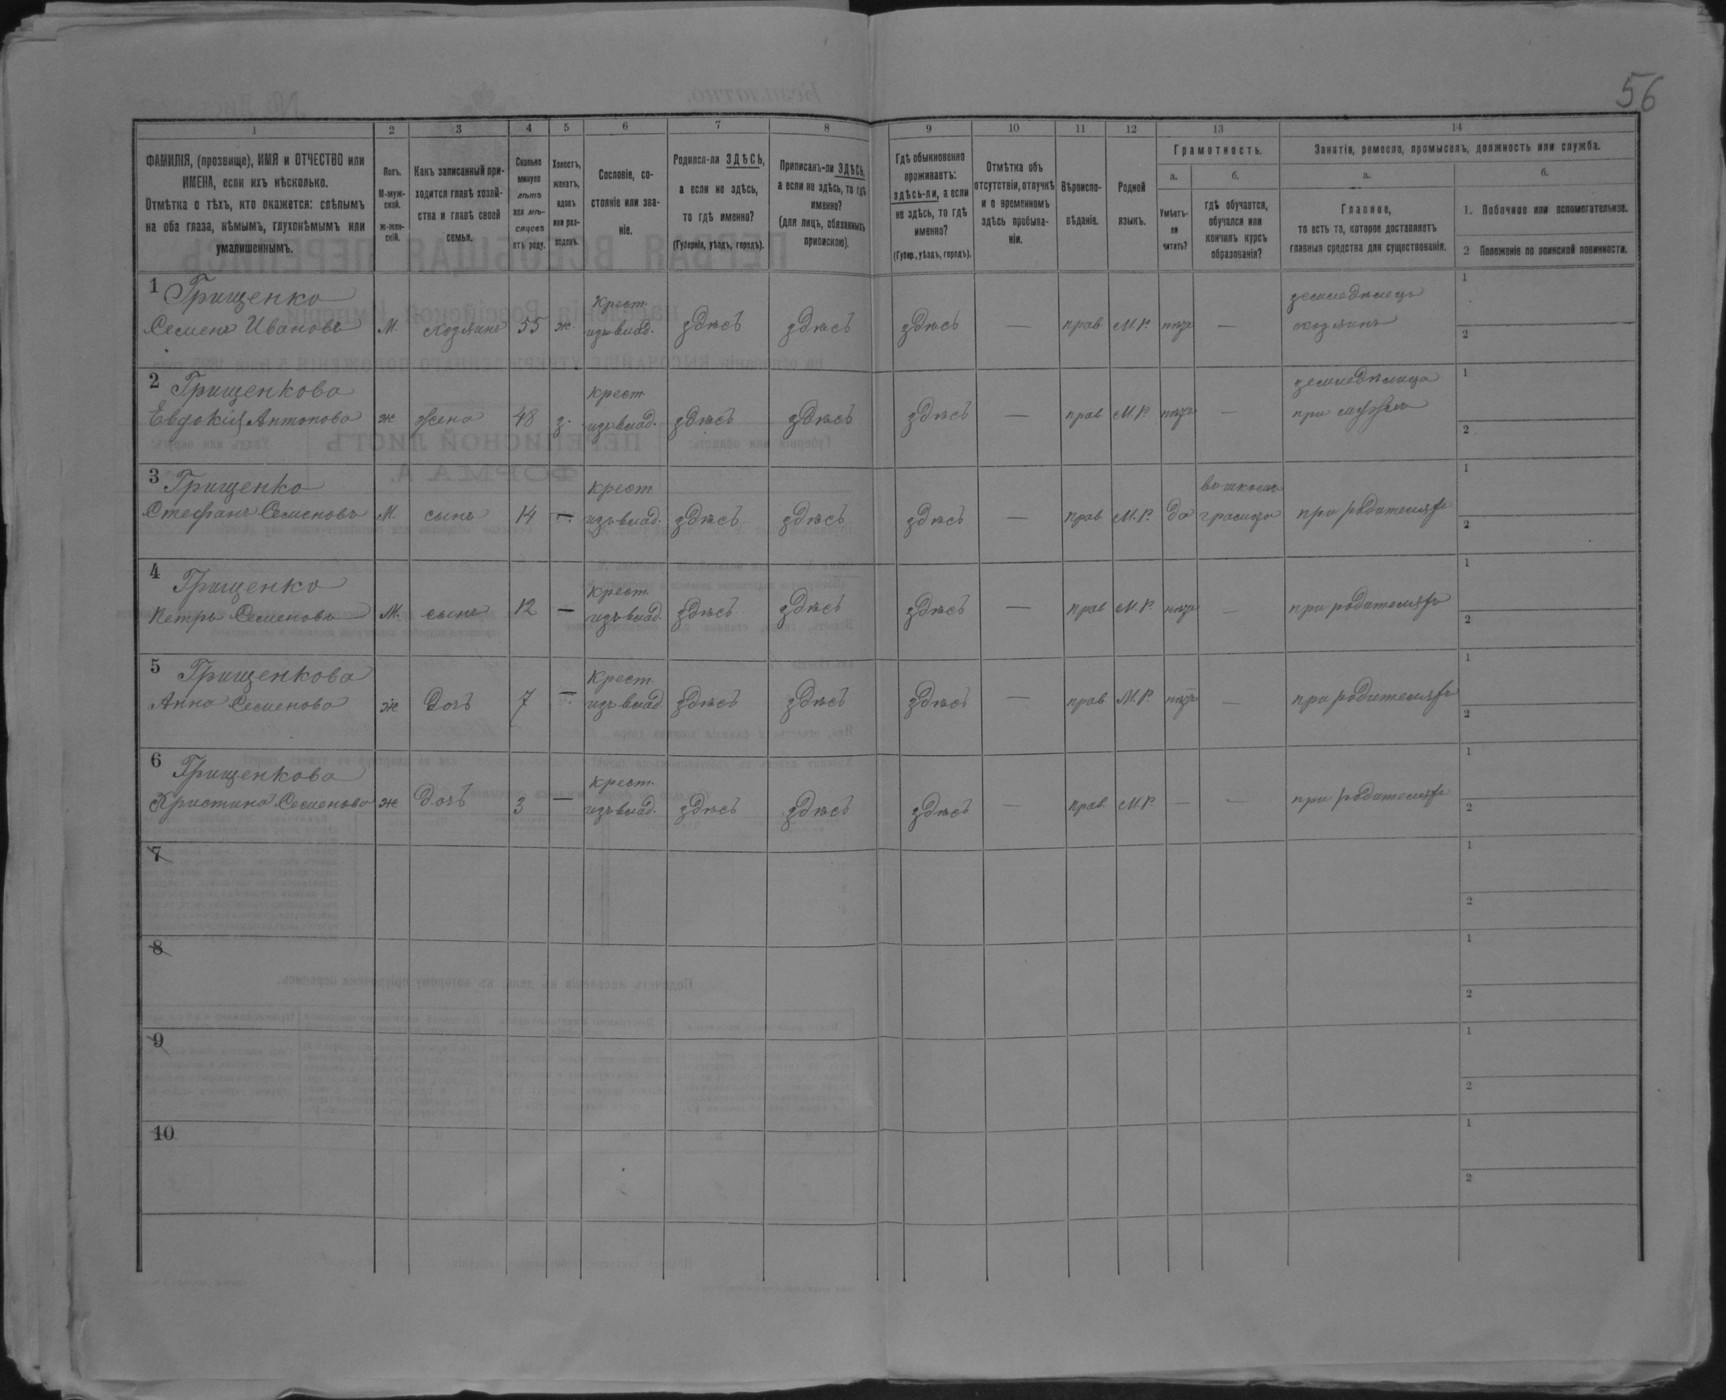 56
1 2 3 4 5 6 7 8 9 10 11 12 13 14
ФАМИЛІЯ, (прозвище), ИМЯ и ОТЧЕСТВО или
ИМЕНА, если ихъ нѣсколько.
Отмѣтка о тѣхъ, кто окажется: слѣпымъ
на оба глаза, нѣмымъ, глухонѣмымъ или
умалишеннымъ.
Полъ.
М-муж-
ской.
ж-жен-
скій.
Какъ записанный при-
ходится главѣ хозяй-
ства и главѣ своей
семьи.
Сколько
минуло
лѣтъ
или мѣ-
сяцевъ
отъ роду.
Холостъ,
женатъ,
вдовъ
или раз-
веденъ.
Сословіе, со-
стояніе или зва-
ніе.
Родился-ли ЗДѢСЬ,
а если не здѣсь,
то гдѣ именно?
(Губернія, уѣздъ, городъ).
Приписанъ-ли ЗДѢСЬ,
а если не здѣсь, то гдѣ
именно?
(для лицъ, обязанныхъ
припискою).
Гдѣ обыкновенно
проживаетъ:
здѣсь-ли, а если
не здѣсь, то гдѣ
именно?
(Губер., уѣздъ, городъ).
Отмѣтка объ
отсутствіи, отлучкѣ
и о временномъ
здѣсь пребыва-
ніи.
Вѣроиспо-
вѣданіе.
Родной
языкъ.
Грамотность.
а.
Умѣетъ-
ли
читать?
б.
гдѣ обучается,
обучался или
кончилъ курсъ
образованія?
Занятіе, ремесло, промыселъ, должность или служба.
а.
Главное,
то есть то, которое доставляетъ
главныя средства для существованія.
б.
1. Побочное или вспомогательное.
2 Положеніе по воинской повинности.
1 Грищенко Крест. земледѣлецъ 1
Семенъ Ивановъ М. хозяинъ 55 ж. изъ влад. здѣсь здѣсь здѣсь — прав М.Р. нѣтъ — хозяинъ 2
2 Грищенкова крест. земледѣлица 1
Евдокія Антонова ж жена 48 з. изъ влад. здѣсь здѣсь здѣсь — прав М.Р. нѣтъ — при 2
3 Грищенко крест. въ школѣ 1
Стефанъ Семеновъ М. сынъ 14 — изъ влад. здѣсь здѣсь здѣсь — прав М.Р. да при родителяхъ 2
4 Грищенко Крест. 1
Петръ Семеновъ М. сынъ 12 — изъ влад. здѣсь здѣсь здѣсь — прав М.Р. нѣтъ — при родителяхъ 2
5 Грищенкова Крест. 1
Анна Семенова ж Дочь 7 — изъ влад. здѣсь здѣсь здѣсь — прав М.Р. нѣтъ — при родителяхъ 2
6 Грищенкова Крест. 1
Христина Семенова ж Дочь 3 — изъ влад. здѣсь здѣсь здѣсь — прав М.Р. — — при родителяхъ 2
7 1
2
8 1
2
9 1
2
10 1
2